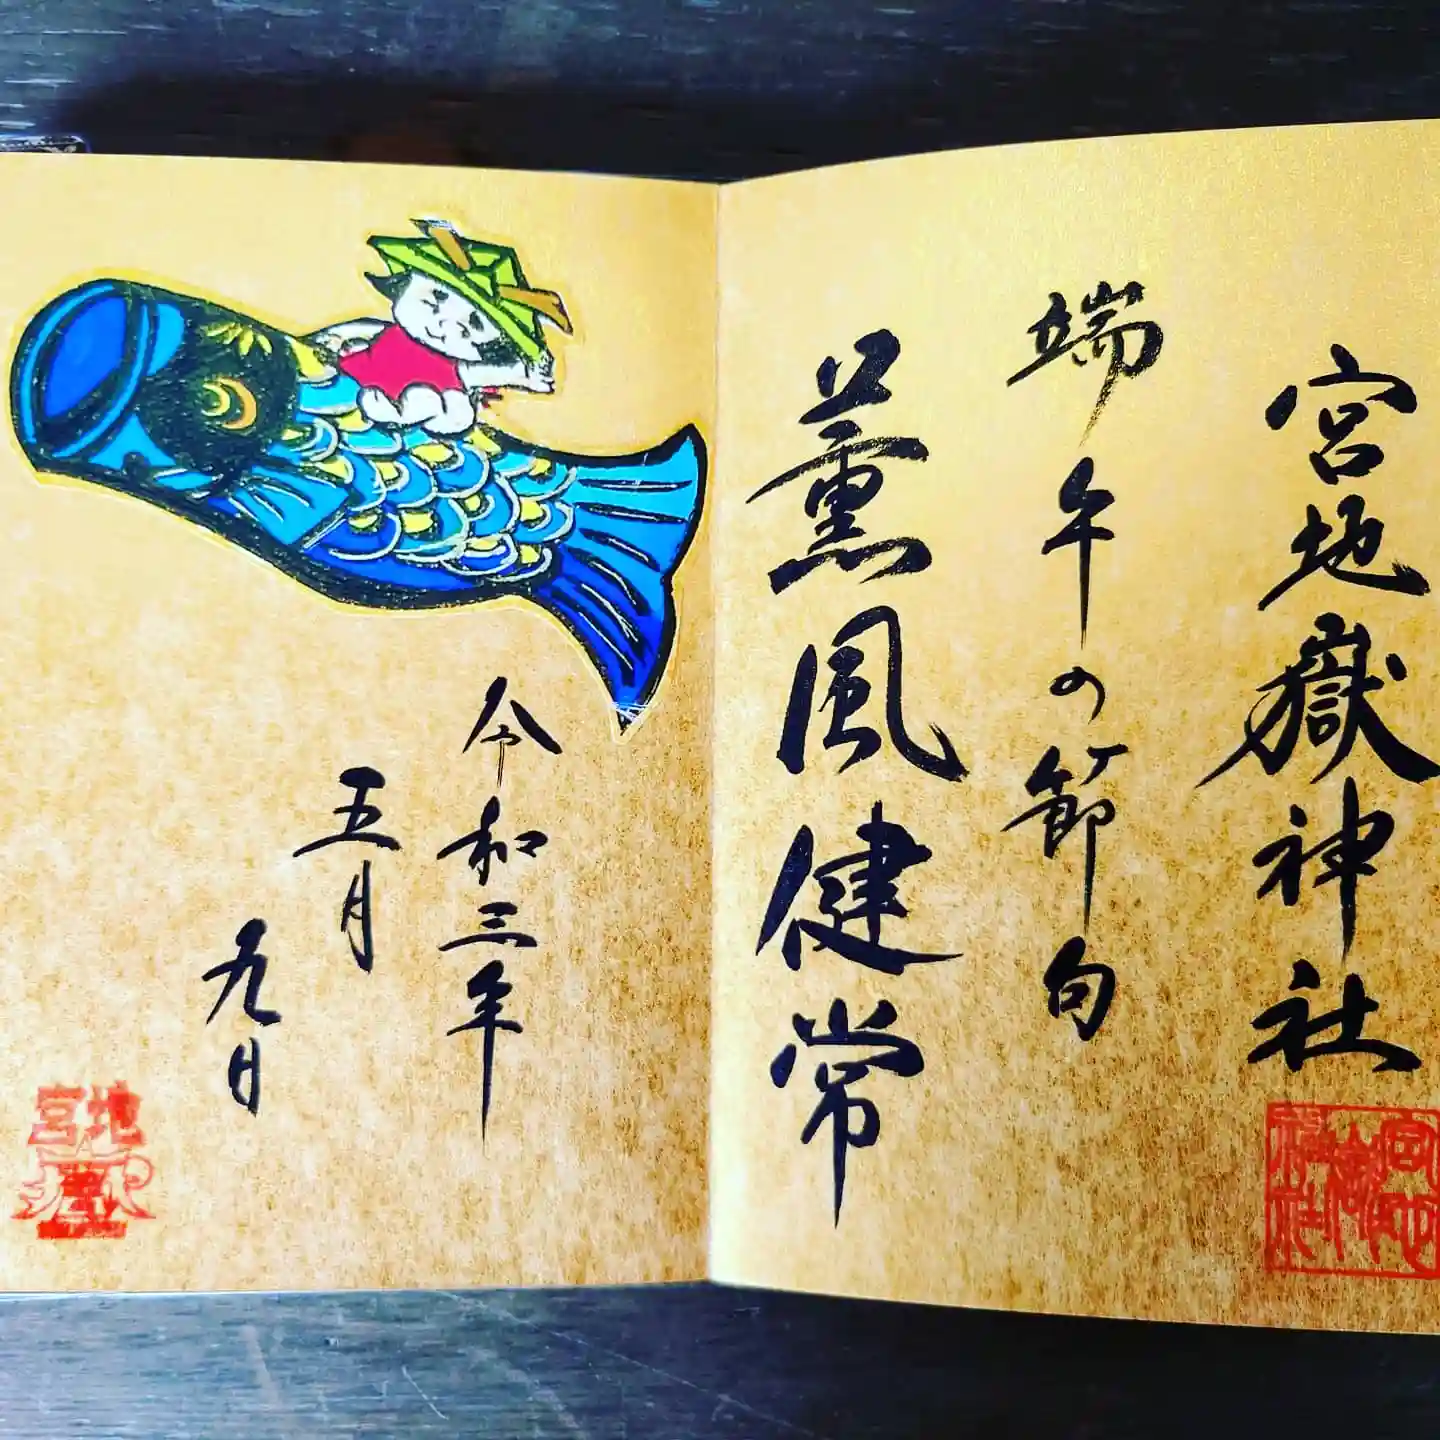 宮地嶽神社
端午の節句
薫風健常
令和三年
五月
九日
宮地
嶽
宮地嶽神社